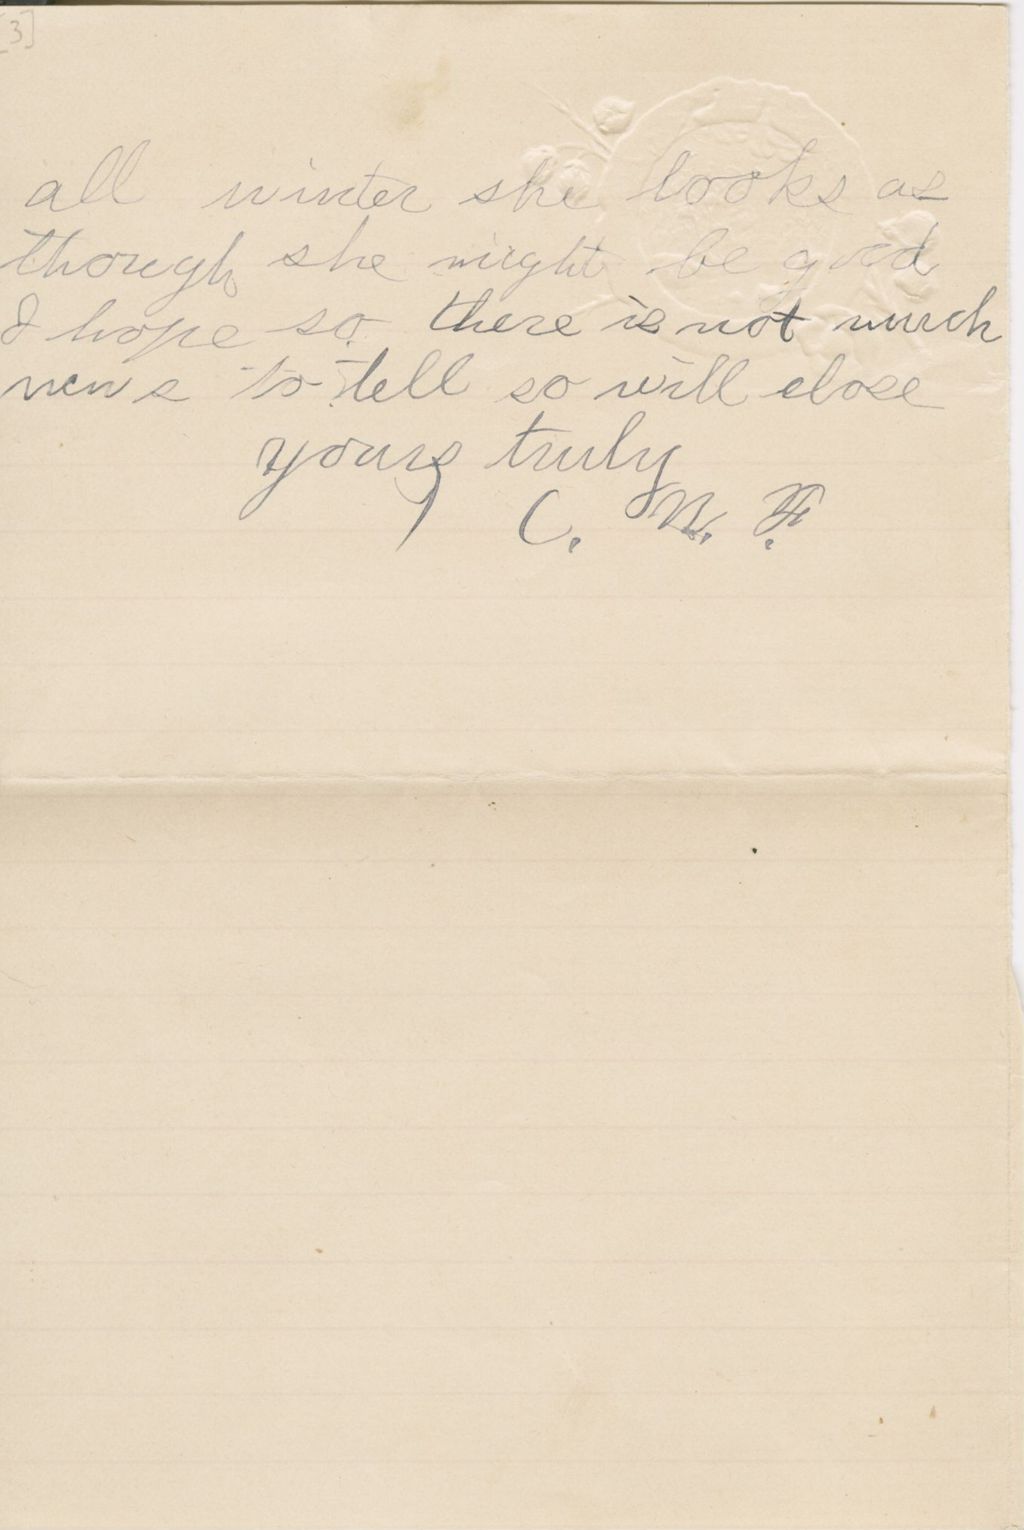 [3]
all winter she looks as
though she might be good
I hope so there is not much
news to tell so will close
yours truly
C.